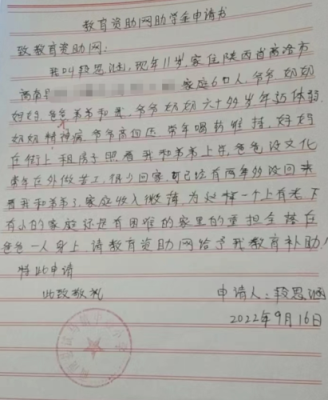 教育资助网助学金申请书
致教育资助网:
我叫段思涵,现年11岁,家住陕西省商洛市
商南 家庭6口人,爷爷 奶奶
妈妈 爸爸 弟弟和我,爷爷 奶奶 六十多岁 年迈体弱
奶奶 精神病 爷爷高血压 常年喝药维持,妈妈
在街上租房子照看我和弟弟上学,爸爸没文化
常年在外做苦工,很少回家 已经有两年多没回来
看我和弟弟了,家庭收入微薄 为这样一个上有老下
有小的家庭还是有困难的 家里的重担全落在
爸爸一人身上,请教育资助网给予我教育补助!
特此申请
此致敬礼
申请人:段思涵
2022年9月16日